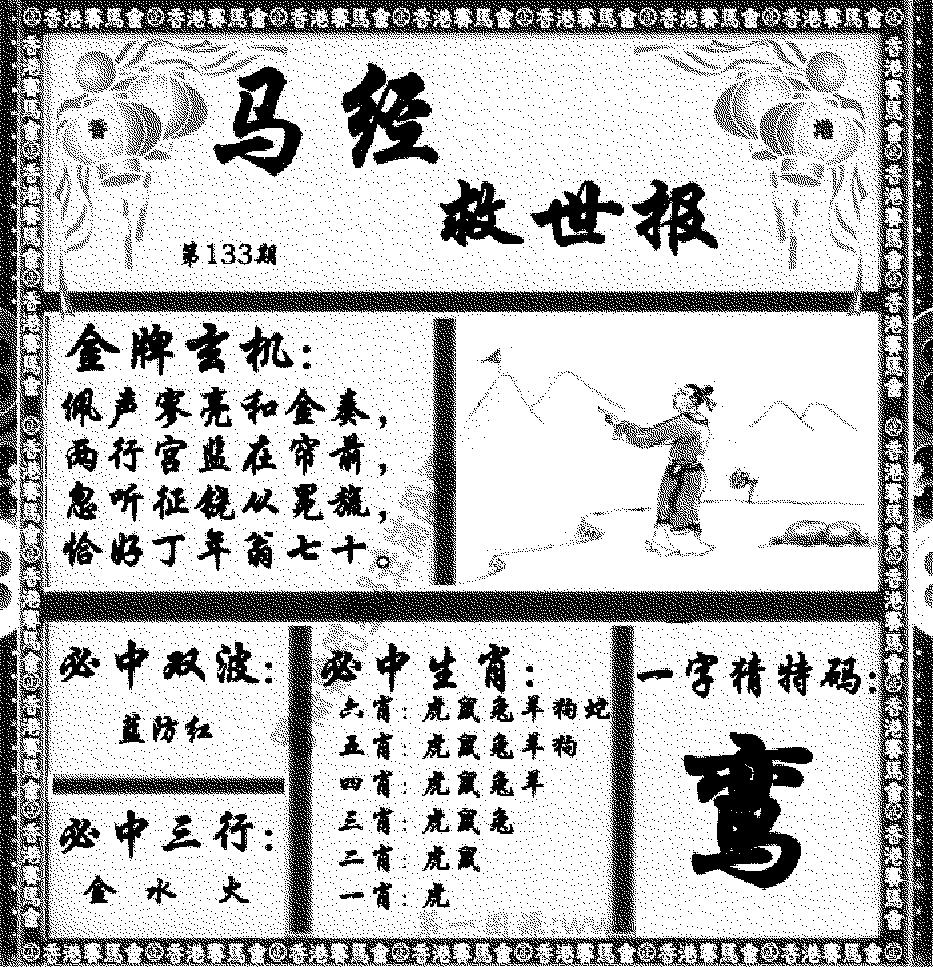 香港賽馬會香港賽馬會香港賽馬會香港賽馬會香港賽馬會香港賽馬會香港賽馬會
香
港
马经
救世报
第133期
金牌玄机:
佩声寥亮和金奏,
两行宫监在帘前,
忽听征铙从冕旒,
恰好丁年翁七十。
必中双波:
蓝防红
必中三行:
金 水 火
必中生肖:
六肖: 虎鼠兔羊狗蛇
五肖: 虎鼠兔羊狗
四肖: 虎鼠兔羊
三肖: 虎鼠兔
二肖: 虎鼠
一肖: 虎
一字猜特码:
鸾
香港賽馬會香港賽馬會香港賽馬會香港賽馬會香港賽馬會香港賽馬會香港賽馬會